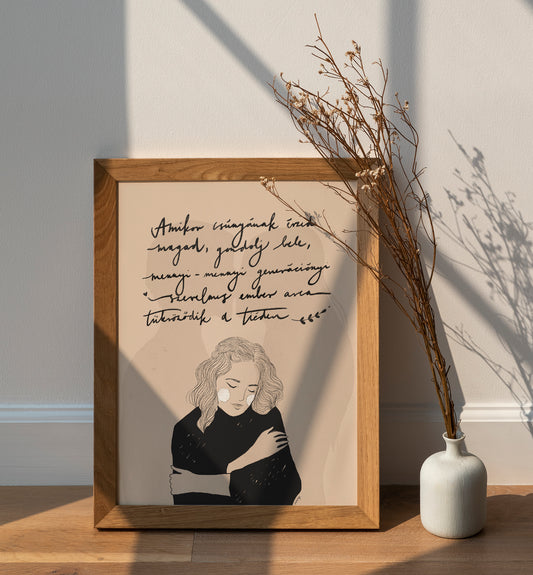 Amikor csúnyának érzed
magad, gondolj bele,
mennyi-mennyi generációnyi
szerelmes ember arca
tükröződik a tieden